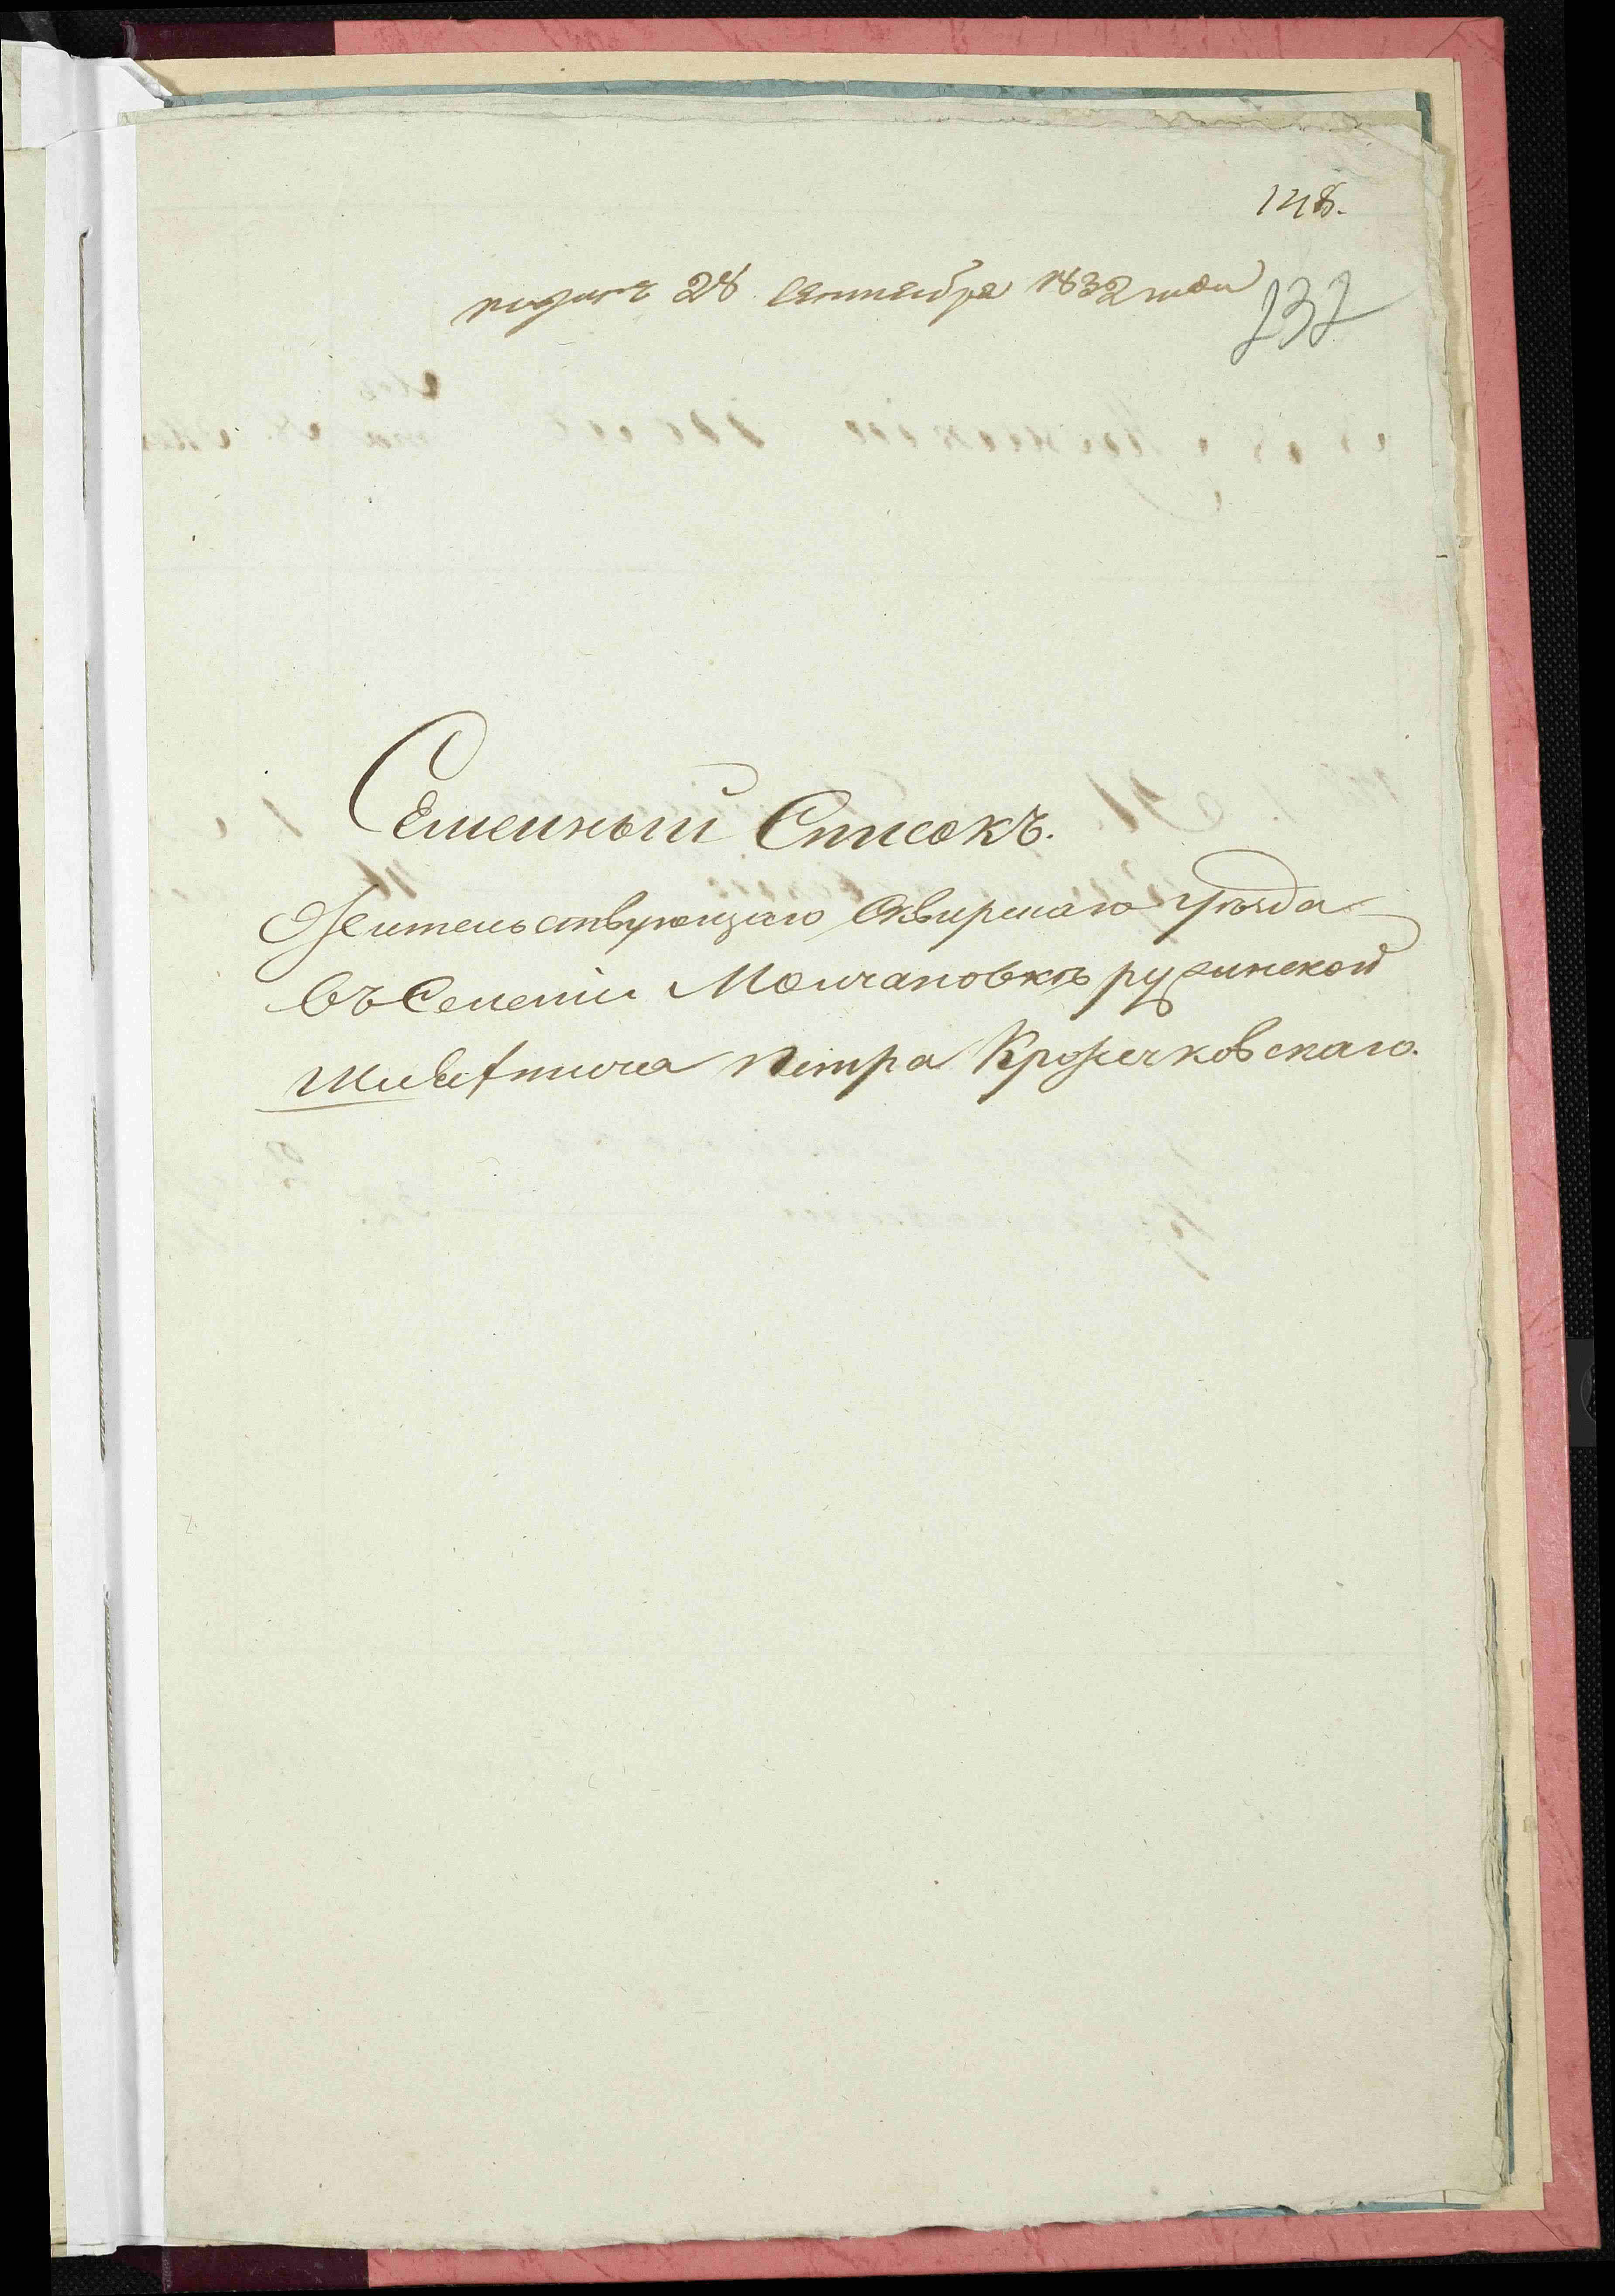 148.
поданъ 28 Сентября 1832 года
232
Семейный Списокъ.
Жительствующаго Сквирскаго уѣзда
въ Селеніи Молчановкѣ ружинской
Шляхтича Петра Крожечковскаго.